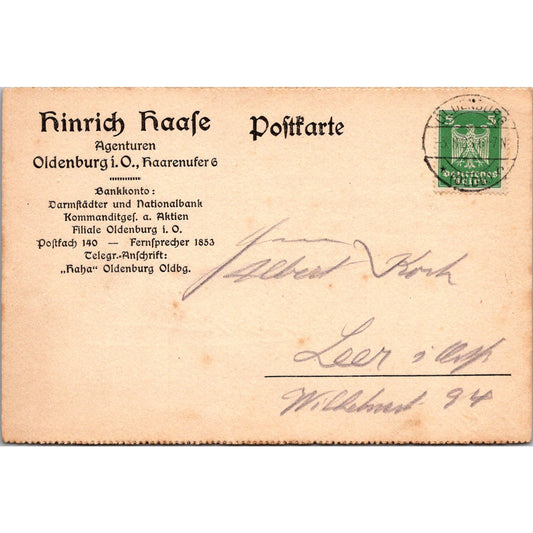 Hinrich Haase
Agenturen
Oldenburg i. O., Haarenufer 6
Bankkonto:
Darmstädter und Nationalbank
Kommanditges. a. Aktien
Filiale Oldenburg i. O.
Postfach 140 — Fernsprecher 1853
Telegr.-Anschrift:
„Haha“ Oldenburg Oldbg.
Postkarte
OLDENBURG
5 5
Deutsches
Reich
Albert Koch
Leer i Ostf
94